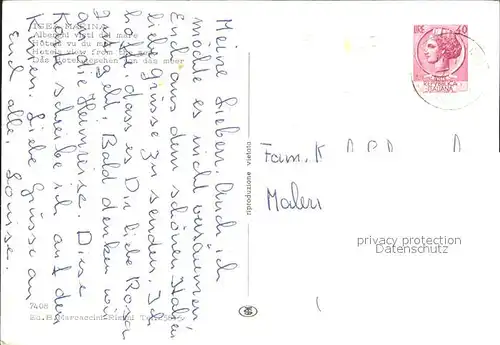 IGEA MARINA
Alberghi visti dal mare
Hôtels vu du mer
Hotels view from the sea
Das Hotel gesehen von das meer
Meine Lieben. Auch ich
möchte es nicht versäumen
Euch aus dem schönen Italien
liebe Grüsse zu senden. Ich
hoffe, dass es Dir liebe Rosa
gut geht. Bald denken wir
an die Heimreise. Diese
Karte schreibe ich auf den
Knien. Liebe Grüsse an
Euch alle. Louise.
7408
Ed. H. Marcaccini
riproduzione vietata
LIRE 40
REPUBBLICA
ITALIANA
Fam. K
Maleri
privacy protection
Datenschutz